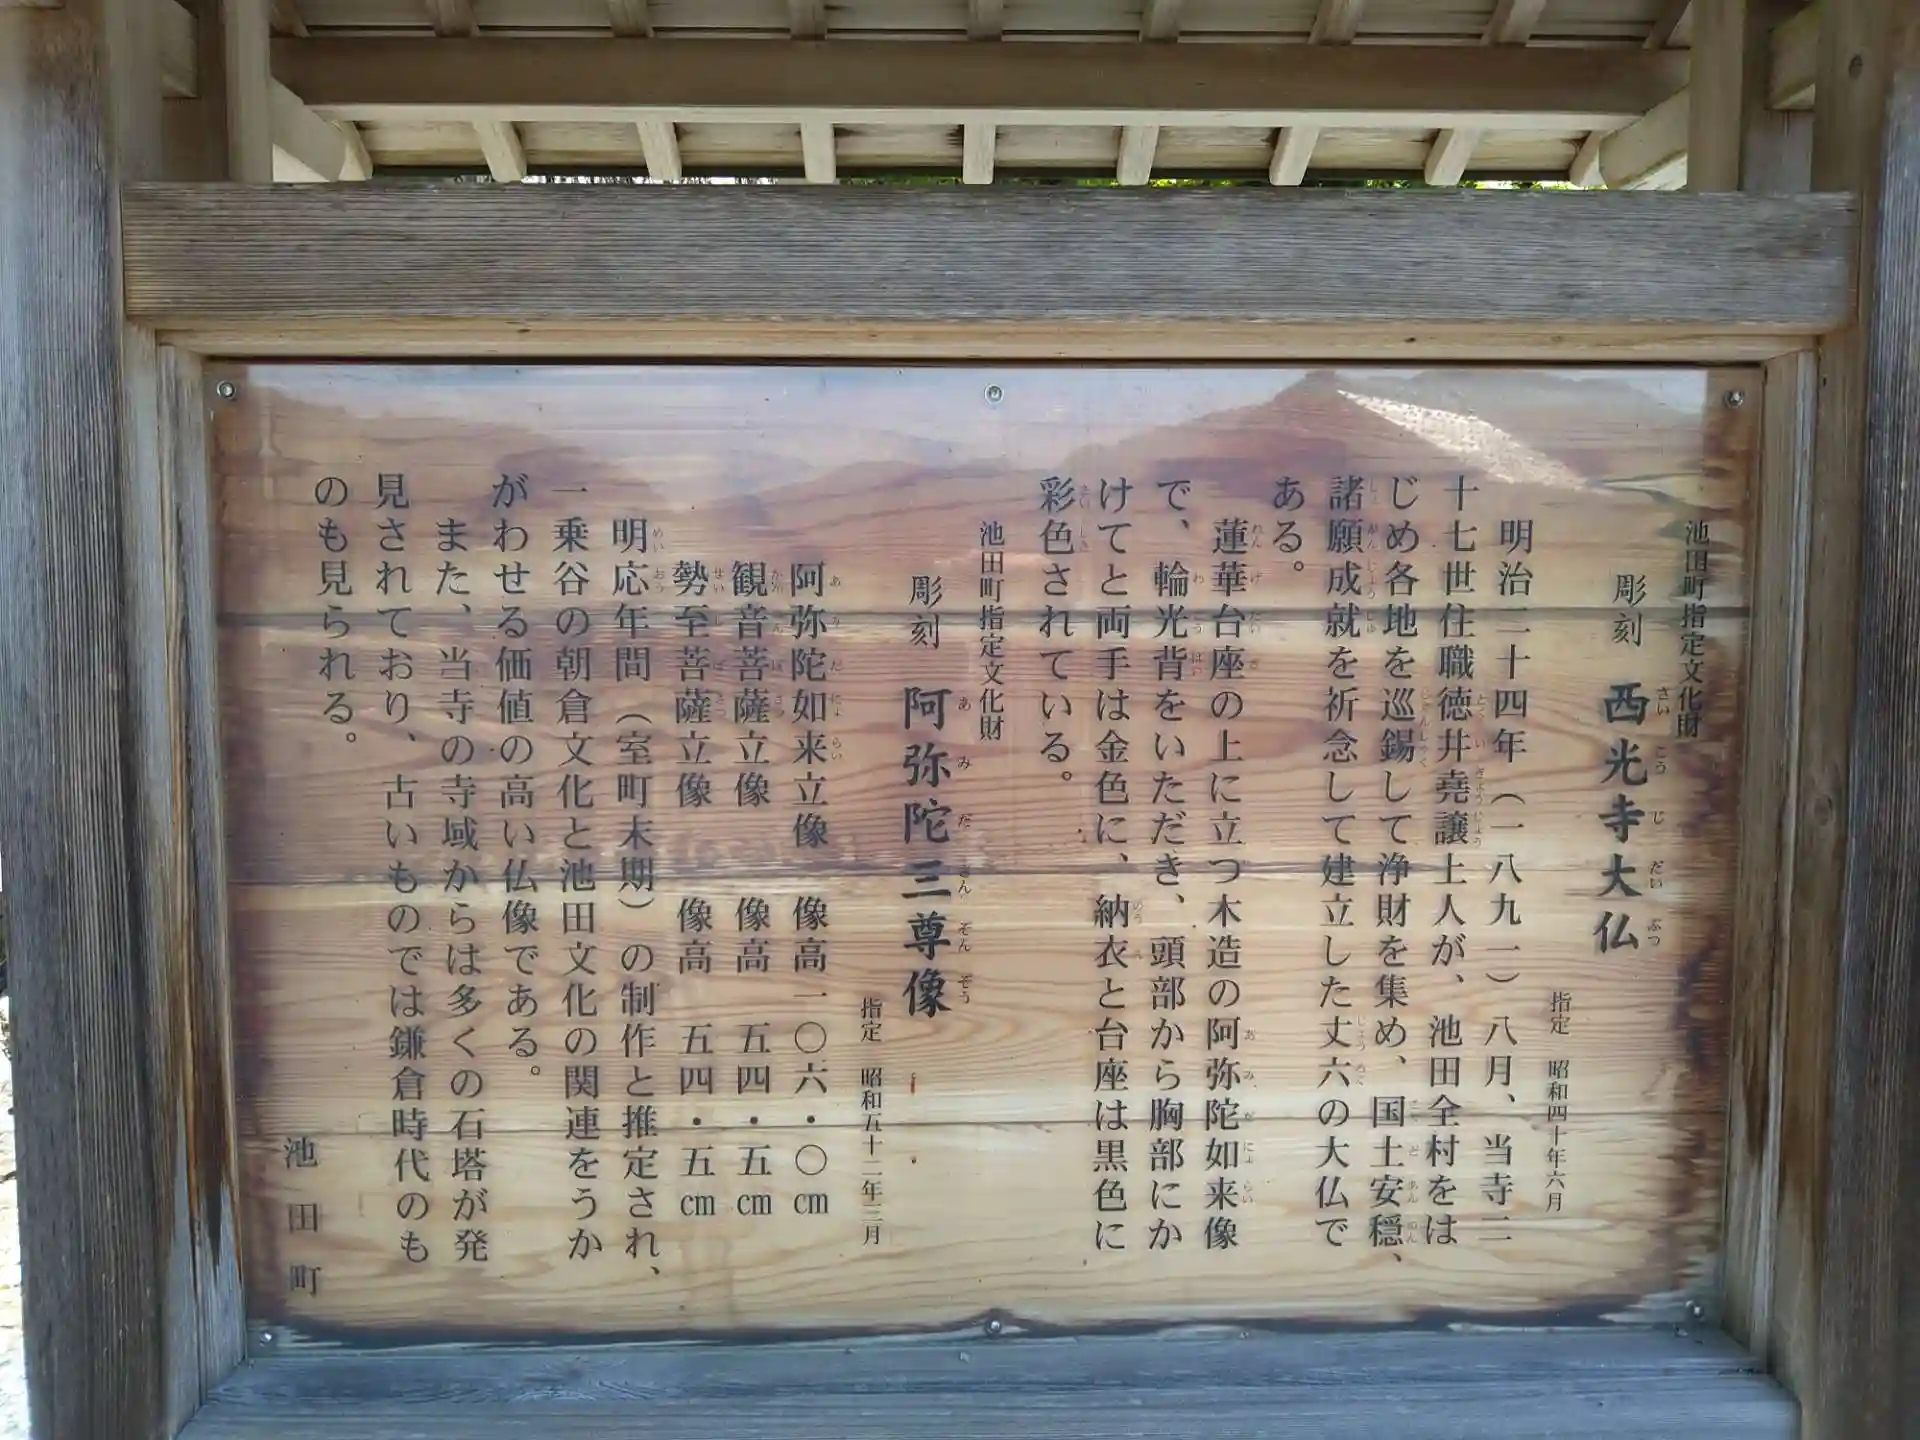 池田町指定文化財
彫刻　西光寺大仏
指定　昭和四十年六月
明治二十四年（一八九一）八月、当寺二
十七世住職徳井堯譲上人が、池田全村をは
じめ各地を巡錫して浄財を集め、国土安穏、
諸願成就を祈念して建立した丈六の大仏で
ある。
蓮華台座の上に立つ木造の阿弥陀如来像
で、輪光背をいただき、頭部から胸部にか
けてと両手は金色に、納衣と台座は黒色に
彩色されている。
池田町指定文化財
彫刻　阿弥陀三尊像
指定　昭和五十二年三月
阿弥陀如来立像　像高一〇六・〇㎝
観音菩薩立像　像高　五四・五㎝
勢至菩薩立像　像高　五四・五㎝
明応年間（室町末期）の制作と推定され、
一乗谷の朝倉文化と池田文化の関連をうか
がわせる価値の高い仏像である。
また、当寺の寺域からは多くの石塔が発
見されており、古いものでは鎌倉時代のも
のも見られる。
池田町